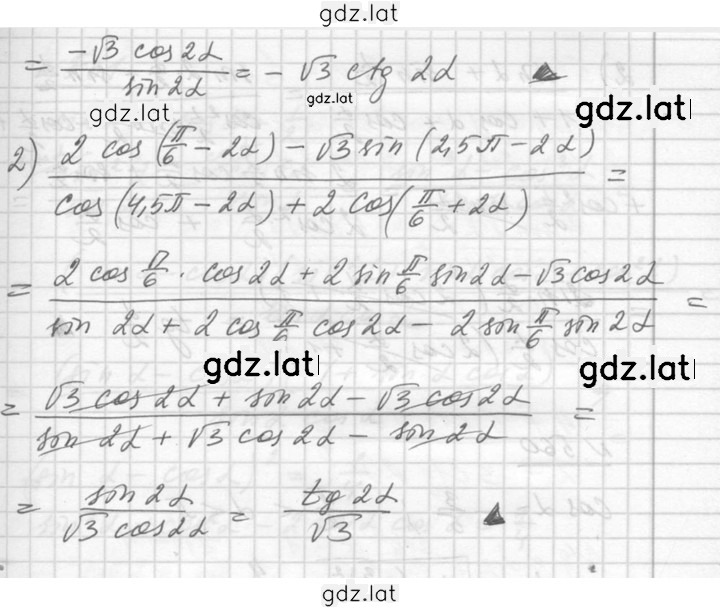 gdz.lat
= -√3 cos 2α / sin 2α = - √3 ctg 2α ▲
gdz.lat gdz.lat gdz.lat
2) 2 cos (π/6 - 2α) - √3 sin (2,5π - 2α) / cos (4,5π - 2α) + 2 cos (π/6 + 2α) =
= 2 cos π/6 · cos 2α + 2 sin π/6 sin 2α - √3 cos 2α / sin 2α + 2 cos π/6 cos 2α - 2 sin π/6 sin 2α =
gdz.lat gdz.lat
= √3 cos 2α + sin 2α - √3 cos 2α / sin 2α + √3 cos 2α - sin 2α =
= sin 2α / √3 cos 2α = tg 2α / √3 ▲
gdz.lat